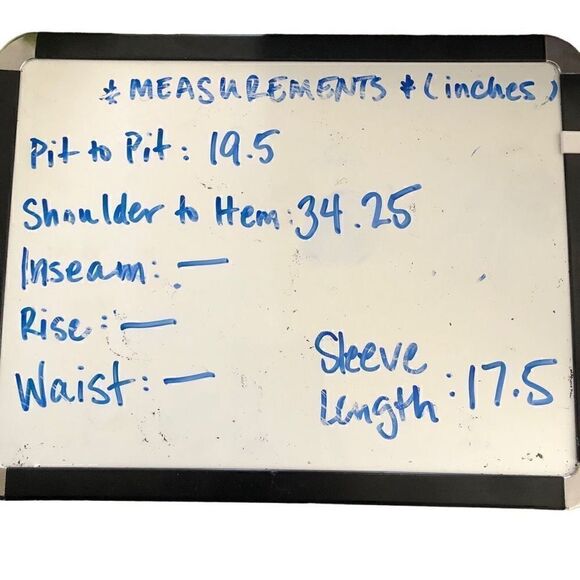 * MEASUREMENTS * (inches)
Pit to Pit: 19.5
Shoulder to Hem: 34.25
Inseam: —
Rise: —
Waist: —
Sleeve
Length: 17.5